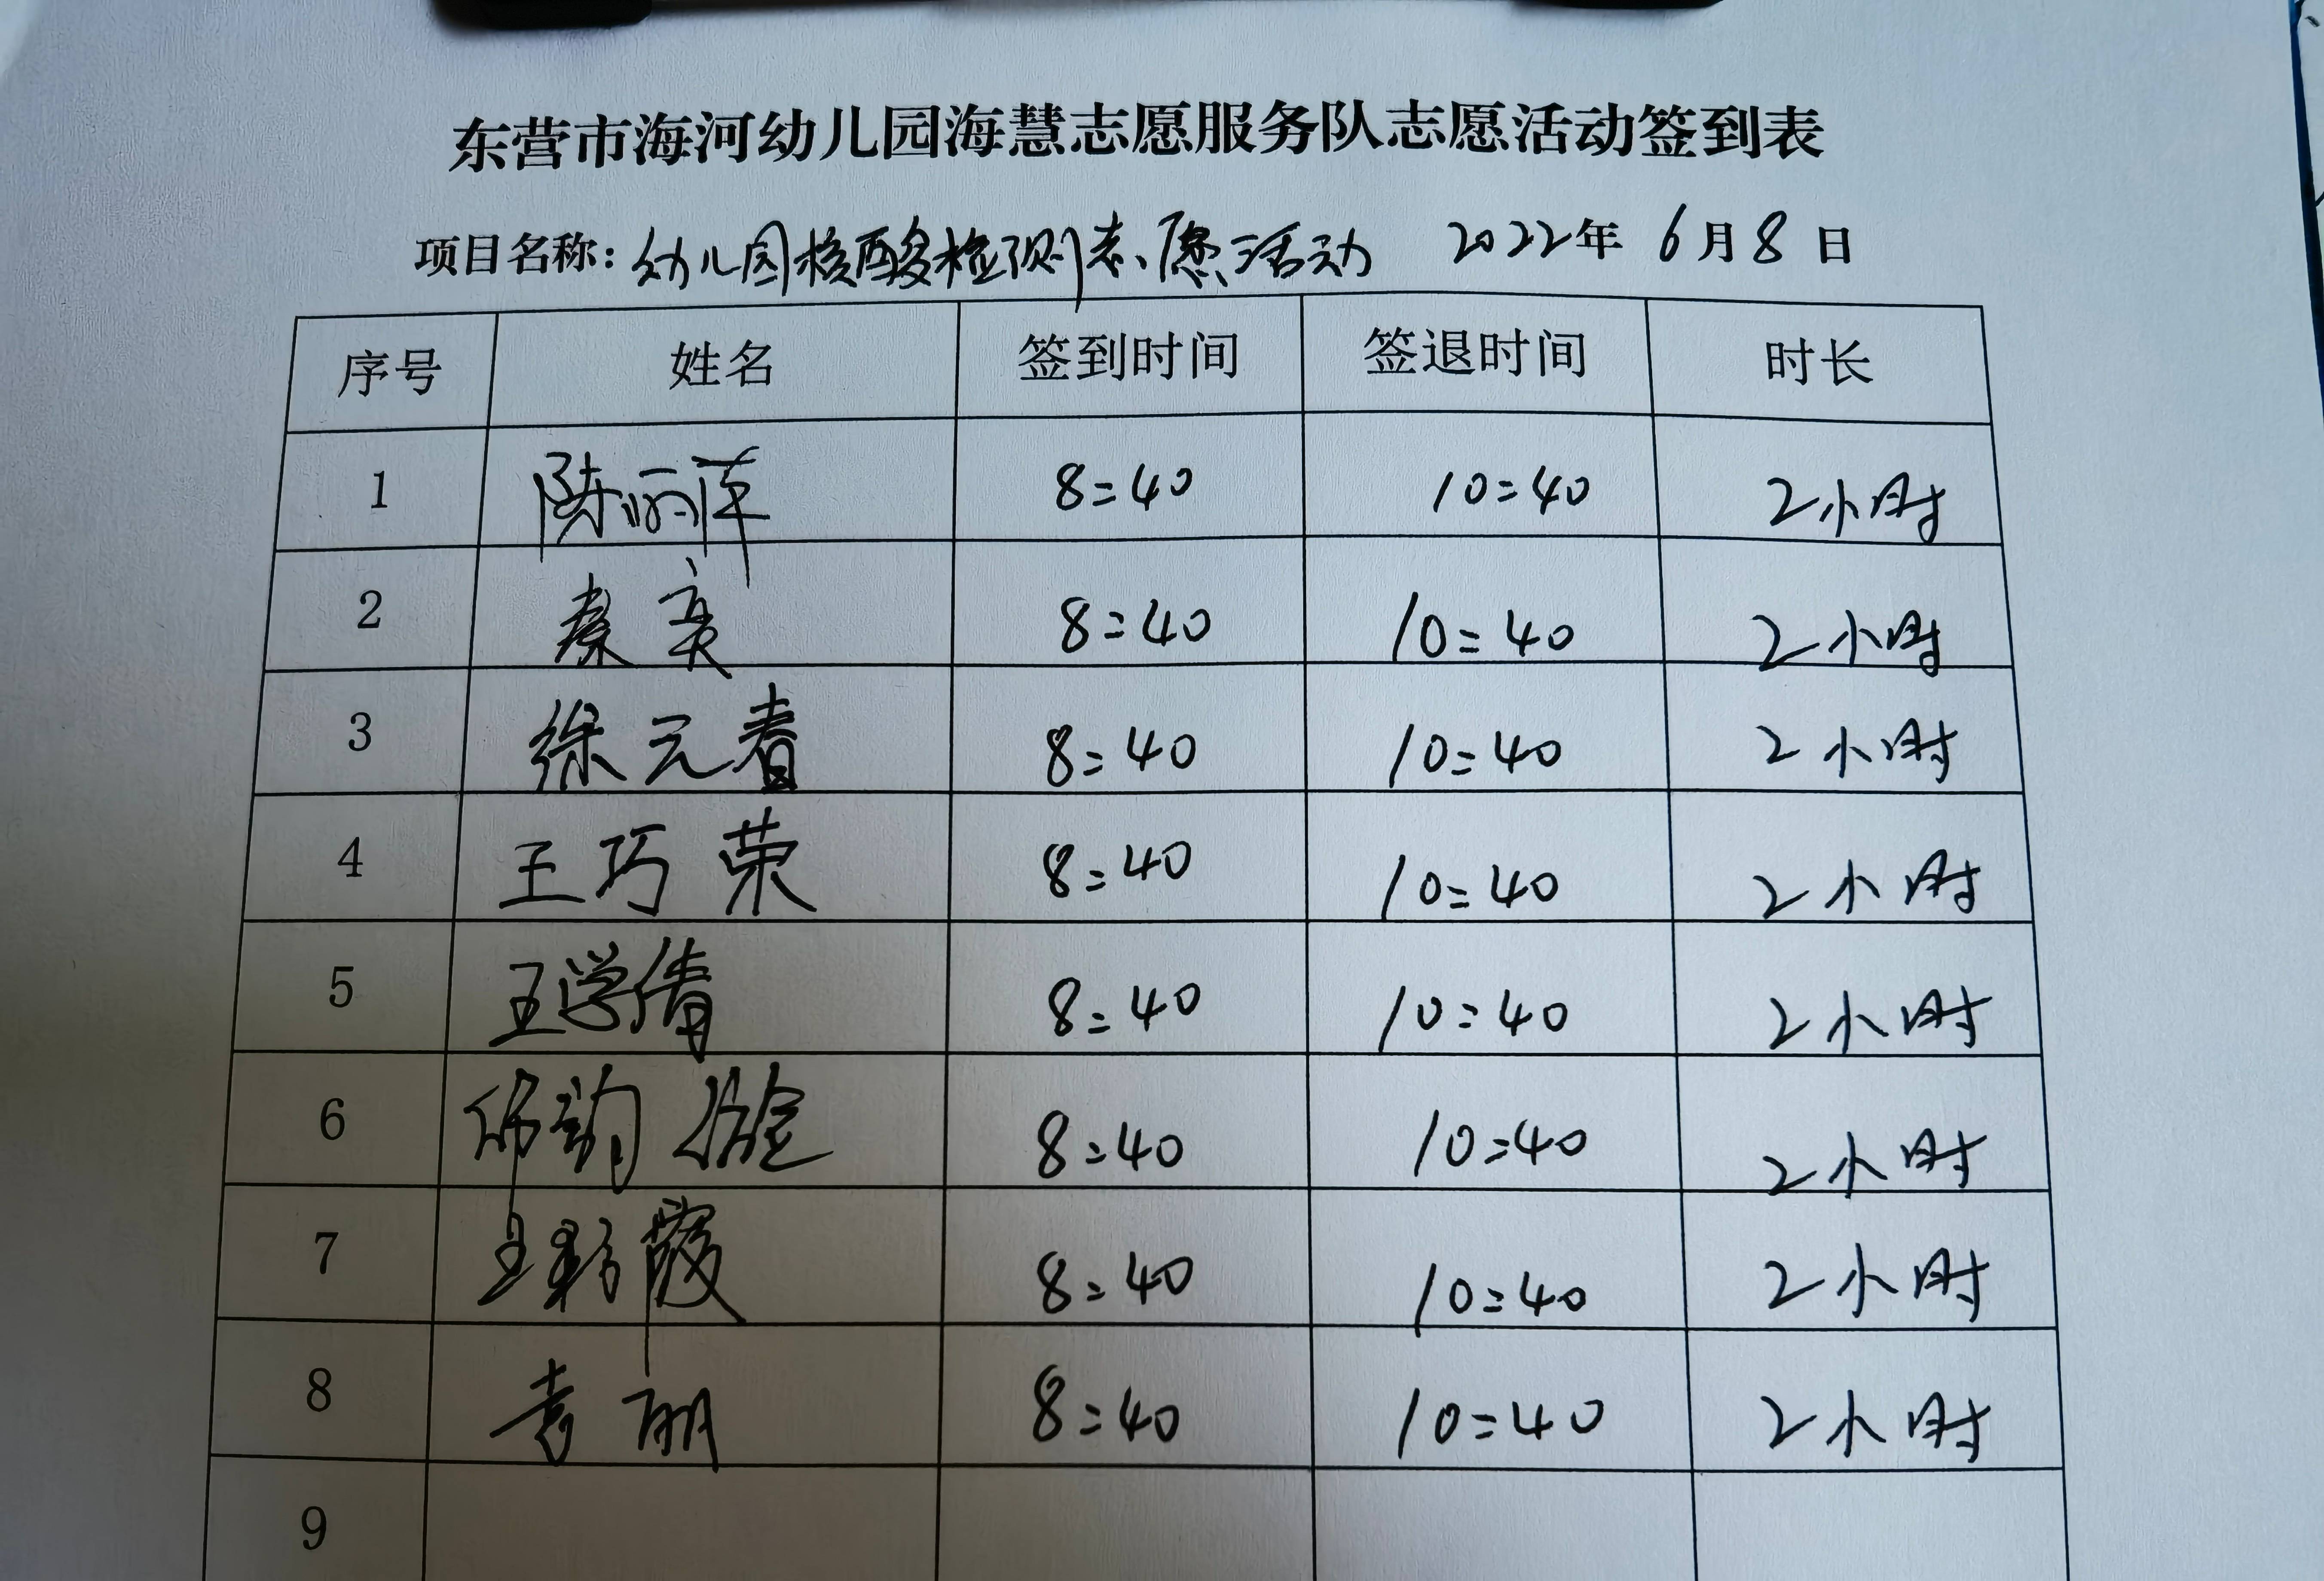 东营市海河幼儿园海慧志愿服务队志愿活动签到表
项目名称：幼儿园核酸检测志愿活动 2022年 6月8日
序号 姓名 签到时间 签退时间 时长
1 陈丽萍 8:40 10:40 2小时
2 秦亮 8:40 10:40 2小时
3 徐元春 8:40 10:40 2小时
4 王巧荣 8:40 10:40 2小时
5 王学倩 8:40 10:40 2小时
6 8:40 10:40 2小时
7 王彩霞 8:40 10:40 2小时
8 丽 8:40 10:40 2小时
9